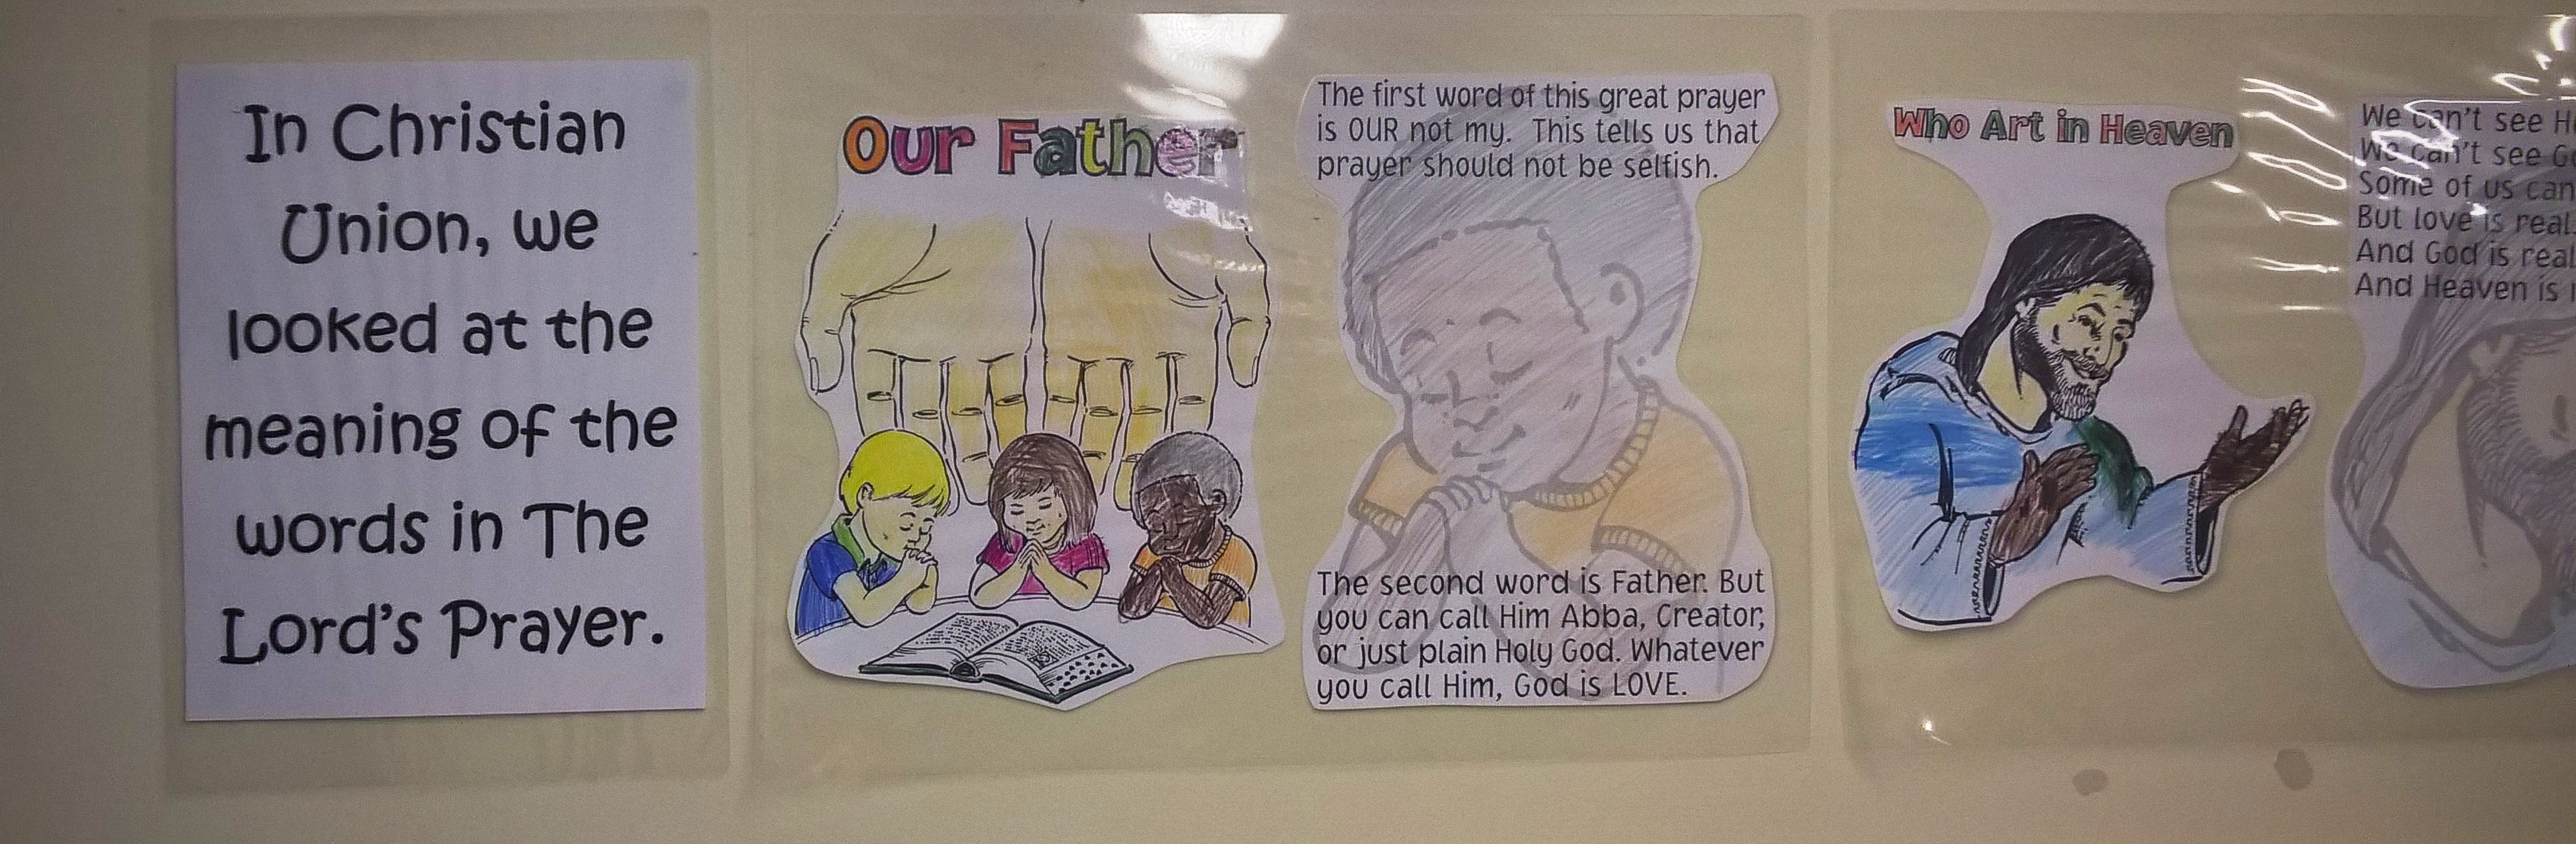 In Christian
Union, we
looked at the
meaning of the
words in The
Lord's Prayer.
Our Father
The first word of this great prayer
is OUR not my. This tells us that
prayer should not be selfish.
The second word is Father. But
you can call Him Abba, Creator,
or just plain Holy God. Whatever
you call Him, God is LOVE.
Who Art in Heaven
We can't see
We can't see
Some of us can
But love is real
And God is real
And Heaven is